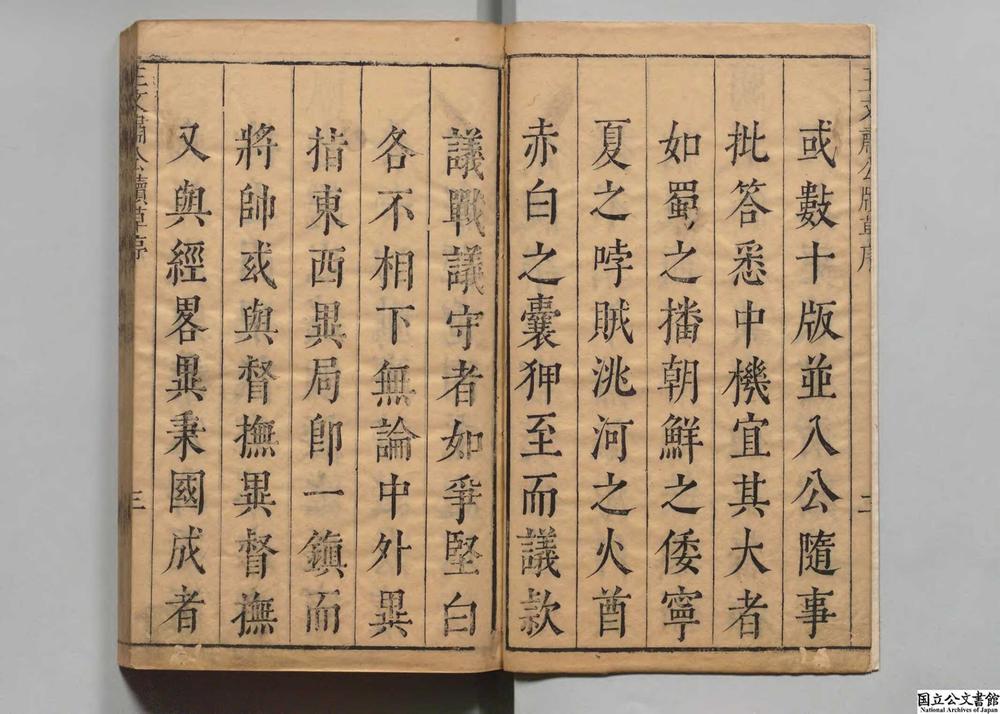 王文肅公牘草序
二
或數十版並入公隨事
批答悉中機宜其大者
如蜀之播朝鮮之倭寧
夏之哱賊洮河之火酋
赤白之囊狎至而議款
議戰議守者如爭堅白
各不相下無論中外異
指東西異局即一鎮而
將帥或與督撫異督撫
又與經畧異秉國成者
王文肅公牘草序
三
国立公文書館
National Archives of Japan